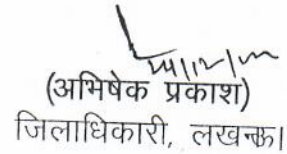 (अभिषेक प्रकाश)
जिलाधिकारी, लखनऊ।